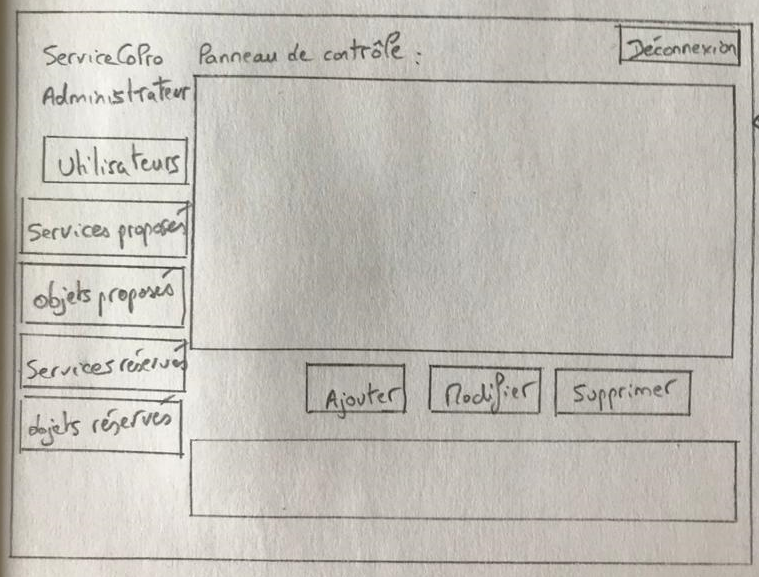 ServiceCoPro Panneau de contrôle :
Déconnexion
Administrateur
Utilisateurs
Services proposés
Objets proposés
Services réservés
Objets réservés
Ajouter Modifier Supprimer